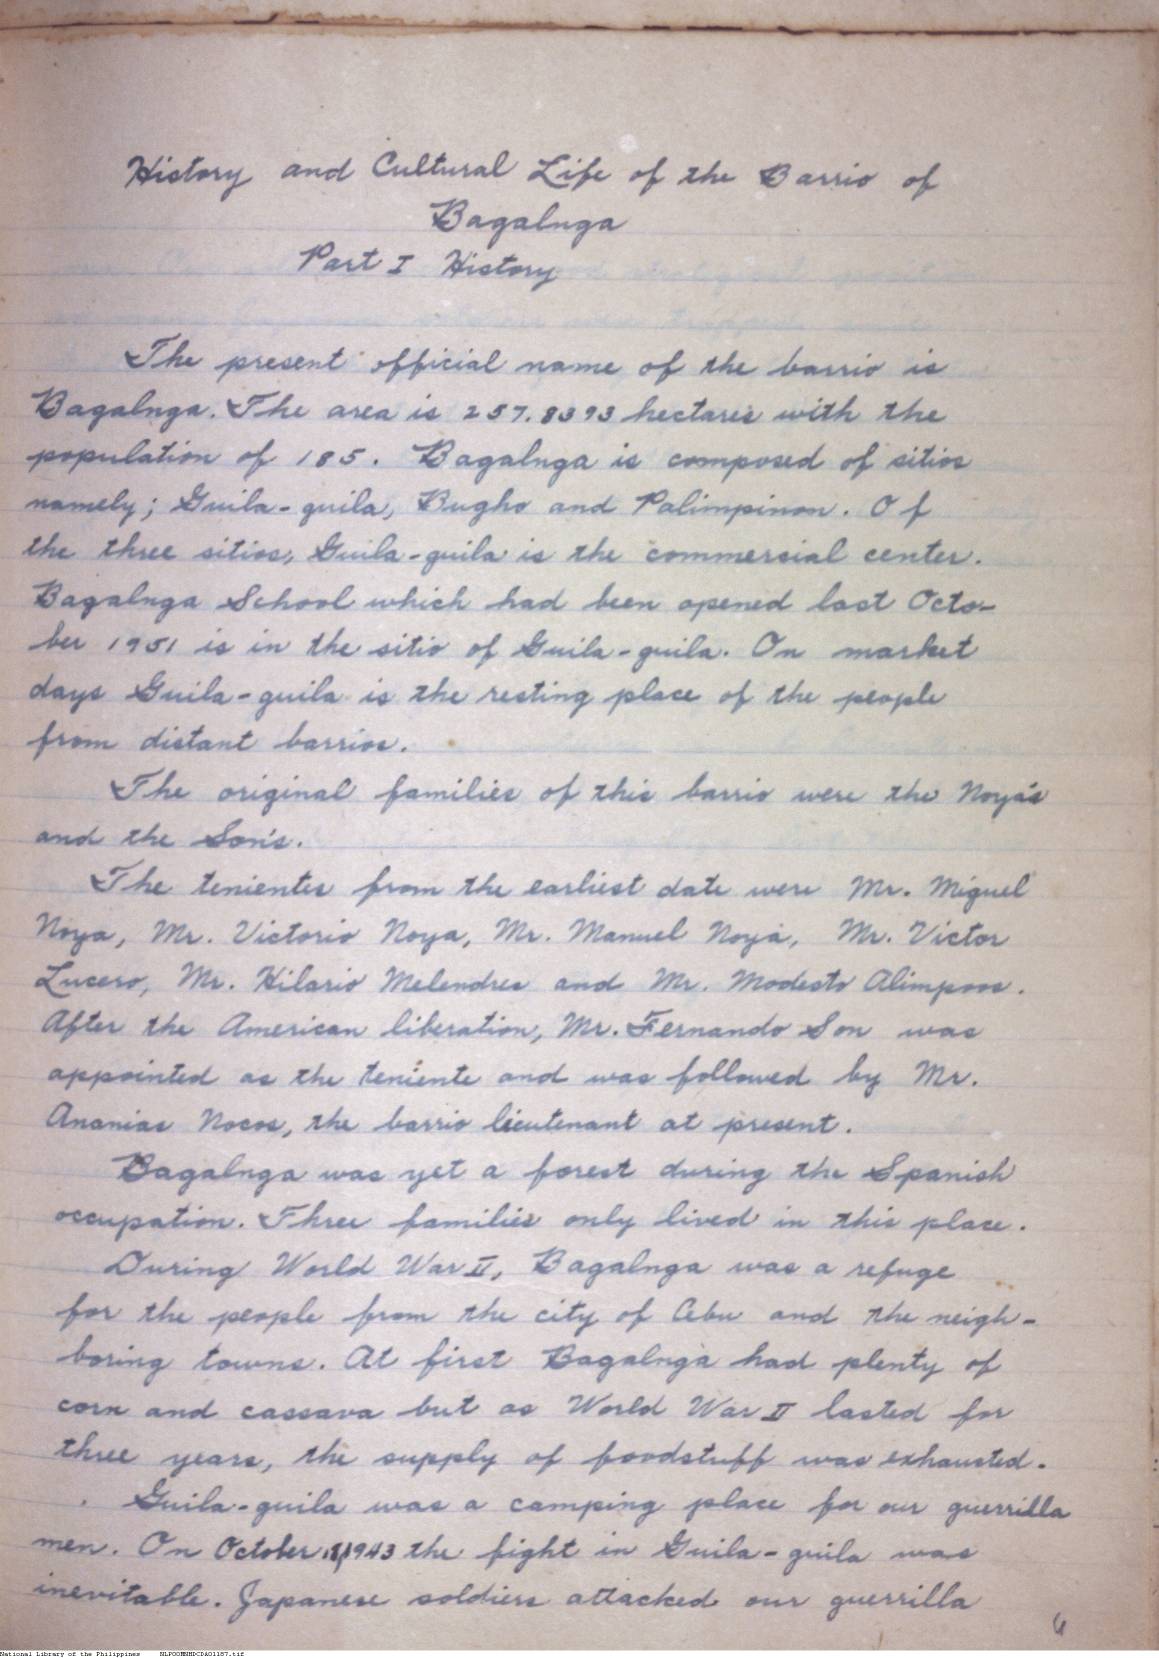 History and Cultural Life of the Barrio of
Bagalnga
Part I History
The present official name of the barrio is
Bagalnga. The area is 257.8393 hectares with the
population of 185. Bagalnga is composed of sitios
namely; Guila-guila, Bugho and Palimpinon. Of
the three sitios, Guila-guila is the commercial center.
Bagalnga School which had been opened last Octo-
ber 1951 is in the sitio of Guila-guila. On market
days Guila-guila is the resting place of the people
from distant barrios.
The original families of this barrio were the Noya's
and the Son's.
The tenientes from the earliest date were Mr. Miguel
Noya, Mr. Victorio Noya, Mr. Manuel Noya, Mr. Victor
Lucero, Mr. Hilario Melendres and Mr. Modesto Alimpoos.
After the American liberation, Mr. Fernando Son was
appointed as the teniente and was followed by Mr.
Ananias Nocos, the barrio lieutenant at present.
Bagalnga was yet a forest during the Spanish
occupation. Three families only lived in this place.
During World War II, Bagalnga was a refuge
for the people from the city of Cebu and the neigh-
boring towns. At first Bagalnga had plenty of
corn and cassava but as World War II lasted for
three years, the supply of foodstuff was exhausted.
Guila-guila was a camping place for our guerrilla
men. On October 1943 the fight in Guila-guila was
inevitable. Japanese soldiers attacked our guerrilla
National Library of the Philippines NLPOOMNHDCDA01187.tif